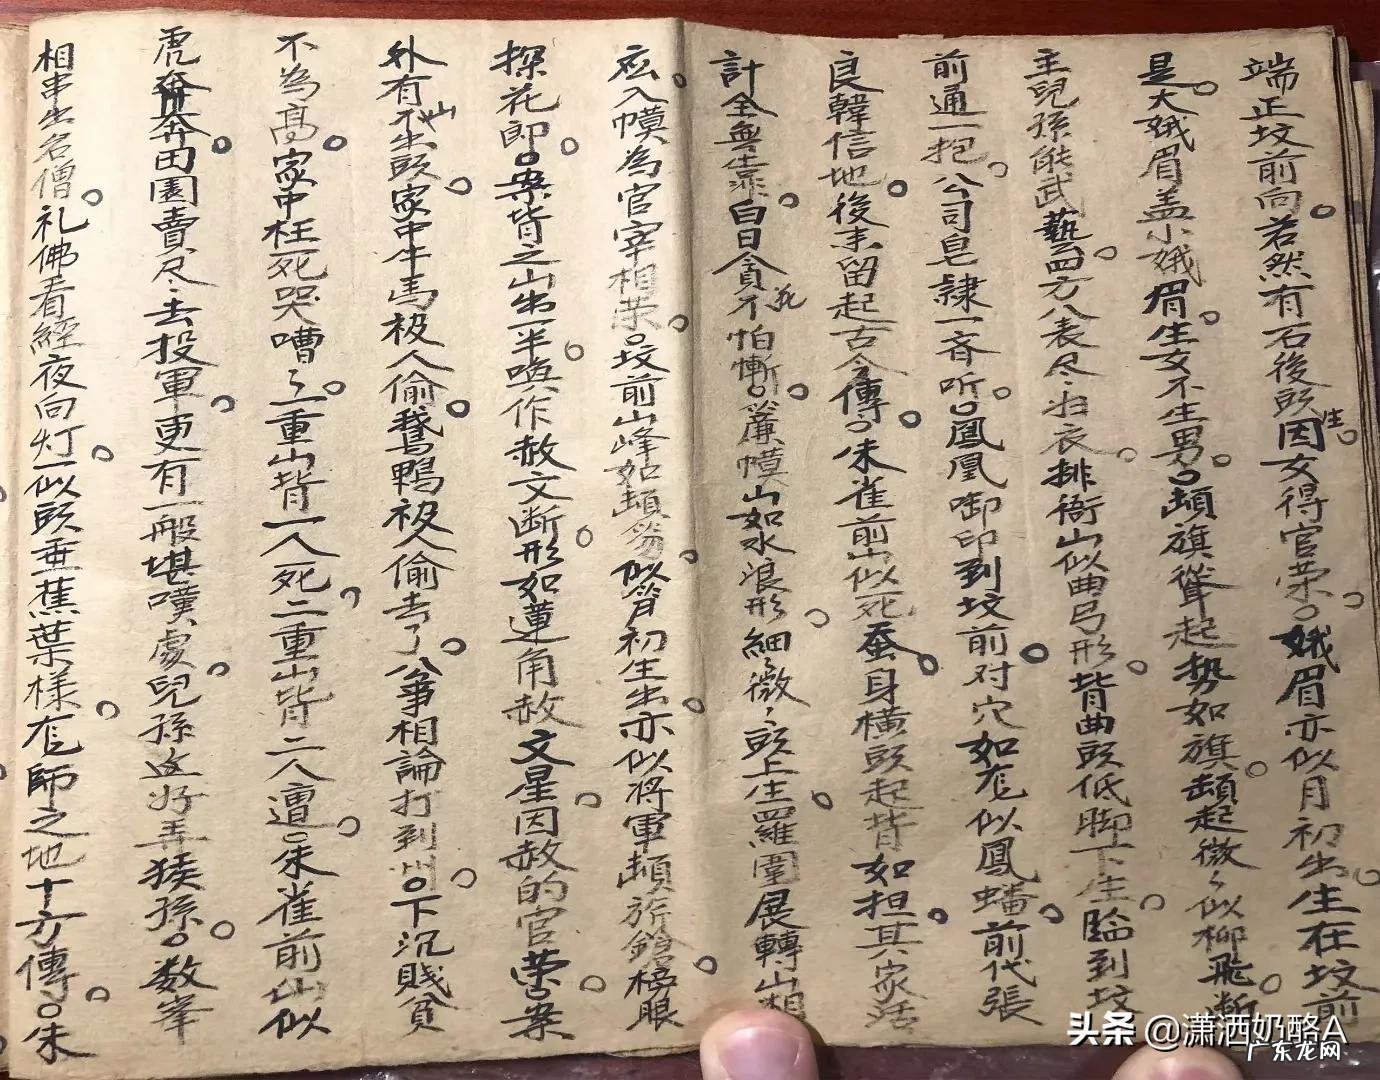 端正坟前向若然有石後頭因女得官荣娥眉亦似月初出生在坟前
是大娥眉盖小娥眉生女不生男頓旗聳起势如旗頓起微々似柳飛断
主兒孫能武藝四方八表尽归衣排衙山似曲弓形背曲頭低脚下生臨到坟
前通一抱公司皂隷一斉听鳳凰啣印到坟前对穴如龙似鳳蟠前代張
良韓信地後来留起古今傳朱雀前山似死蚕身横頭起背如担其家活
計全無靠白日貪花不怕慚簾幙山如水浪形細微々頭上生羅圍展轉山相
应入幙為官宰相荣坟前山峰如頓笏似眉初生出亦似将軍頓旂鎗榜眼
探花郎案背之山出一半喚作赦文断形如蓮角赦文星因赦的官荣案
外有山不出頭家中牛馬被人偷鵝鴨被人偷去了公事相論打到州下沉賤貧
不為高家中枉死哭嘈々一重山背一人死二重山背二人遭朱雀前山似
虎奔奔田園賣尽去投軍更有一般堪嘆處兒孫这好弄猴孫数峯
相串出名僧礼佛看經夜向灯一似頭垂蕉葉樣龙師之地十方傳朱
生
头条 @潇洒奶酪A
广东龙网